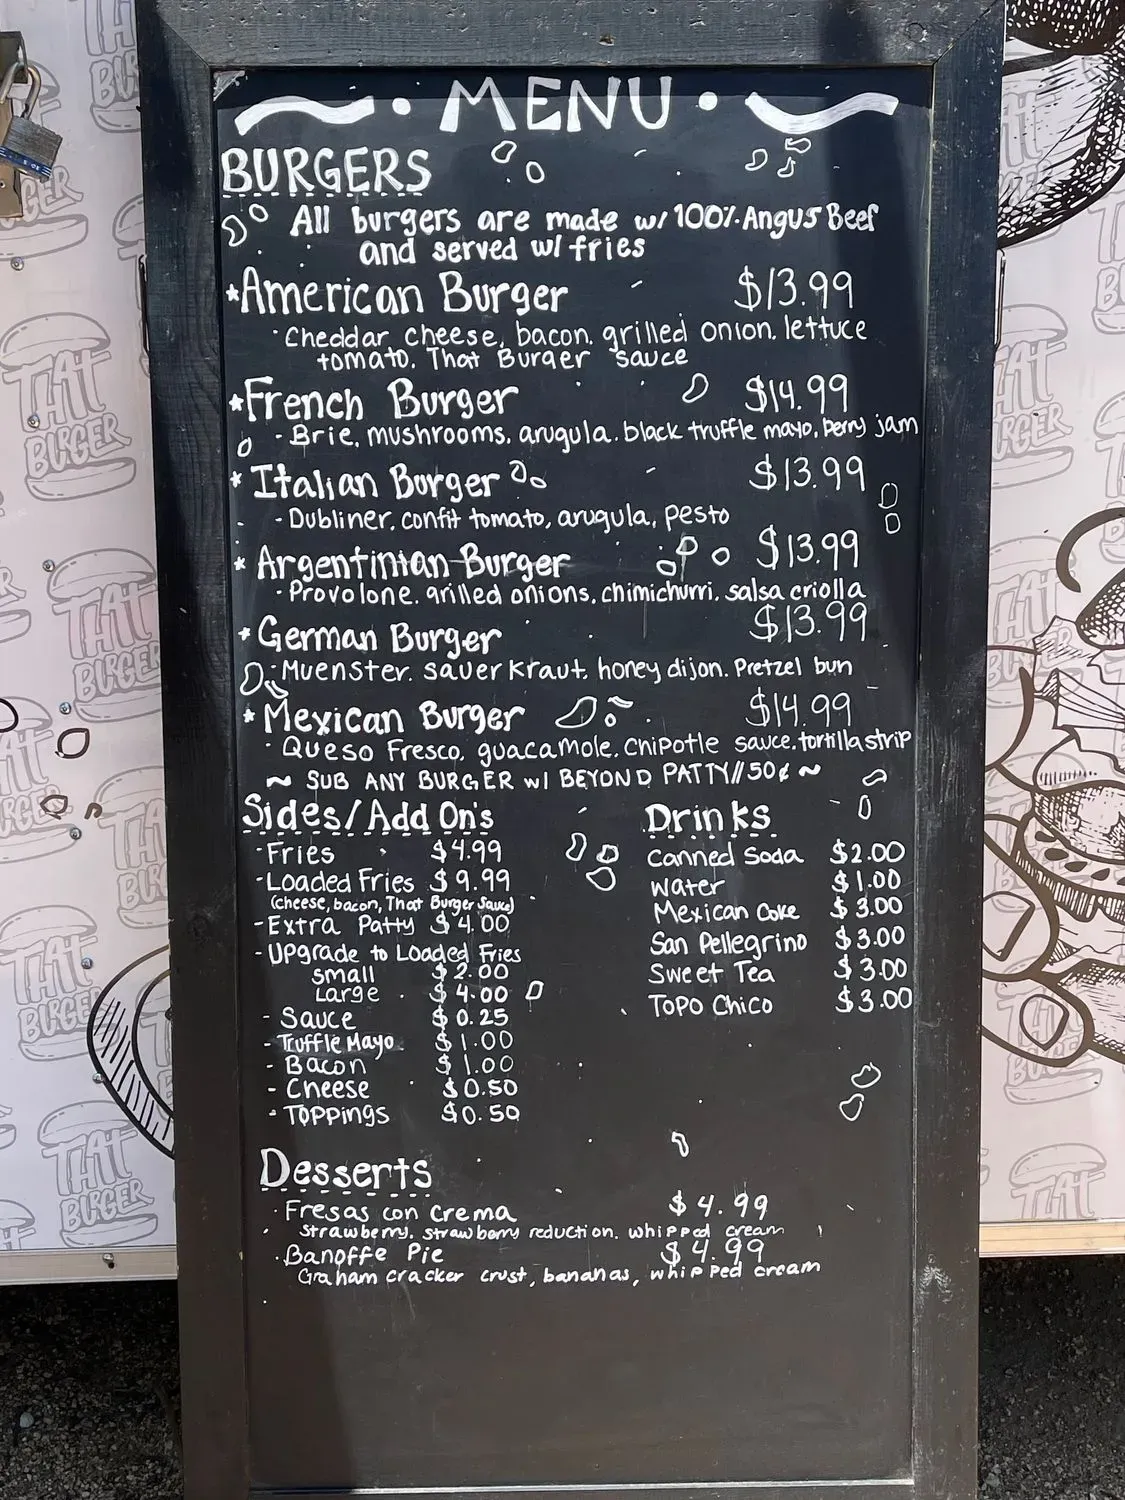 MENU
BURGERS
All burgers are made w/ 100% Angus Beef
and served w/ fries
*American Burger $13.99
· Cheddar cheese, bacon, grilled onion, lettuce
tomato, That Burger sauce
*French Burger $14.99
- Brie, mushrooms, arugula, black truffle mayo, berry jam
* Italian Burger $13.99
- Dubliner, confit tomato, arugula, pesto
* Argentinian Burger $13.99
· Provolone, grilled onions, chimichurri, salsa criolla
* German Burger $13.99
· Muenster, sauerkraut, honey dijon, Pretzel bun
* Mexican Burger $14.99
· Queso Fresco, guacamole, chipotle sauce, tortilla strip
~ SUB ANY BURGER w/ BEYOND PATTY//50¢ ~
Sides/Add On's
- Fries $4.99
- Loaded Fries $9.99
(cheese, bacon, That Burger Sauce)
- Extra Patty $4.00
- Upgrade to Loaded Fries
small $2.00
Large $4.00
- Sauce $0.25
- Truffle Mayo $1.00
- Bacon $1.00
- Cheese $0.50
- Toppings $0.50
Drinks
Canned Soda $2.00
Water $1.00
Mexican Coke $3.00
San Pellegrino $3.00
Sweet Tea $3.00
Topo Chico $3.00
Desserts
· Fresas con Crema $4.99
strawberry, strawberry reduction, whipped cream
· Banoffe Pie $4.99
Graham cracker crust, bananas, whipped cream
THAT
BURGER